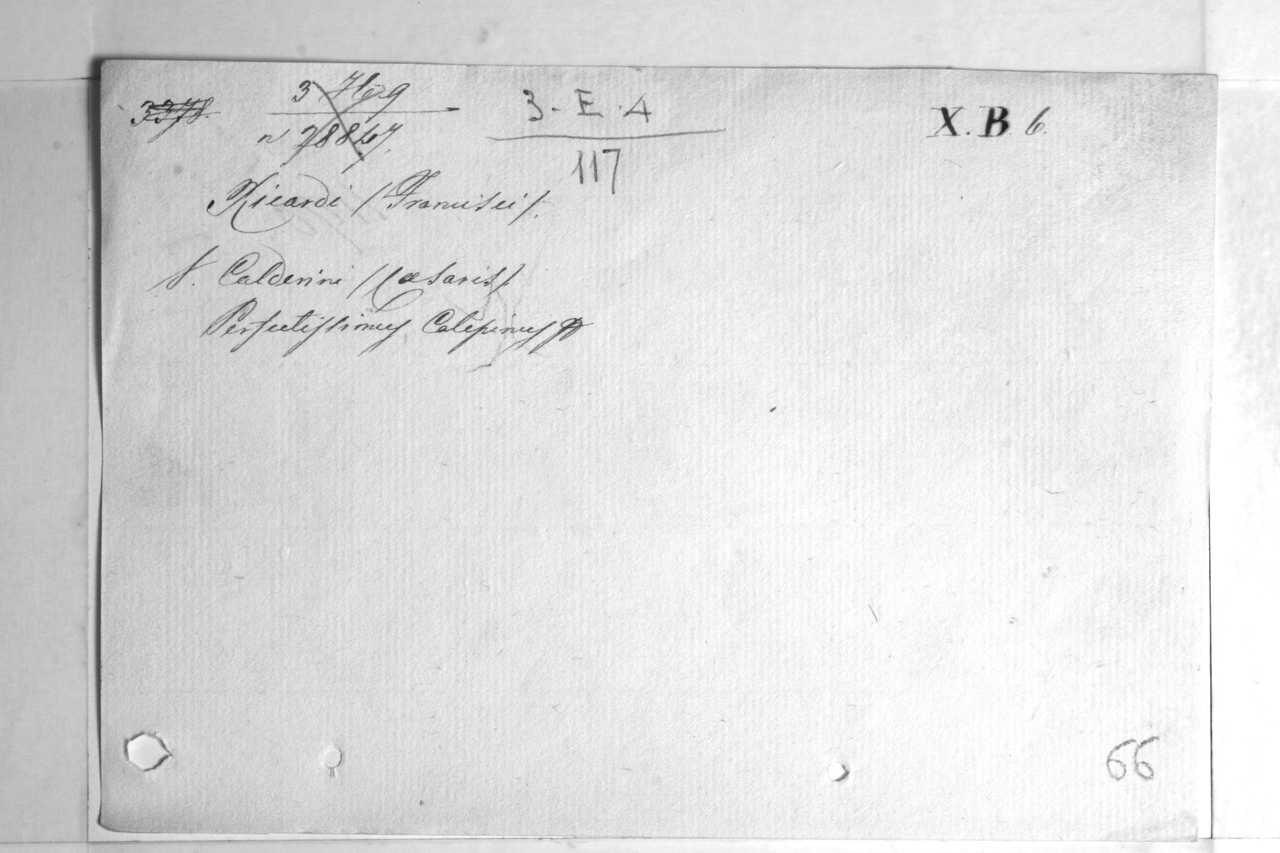 3378
3 Hg9
n 78847.
3-E.4
117
X.B 6.
Ricardi /Francisci/.
S. Calderini /Cæsaris/
Perfectissimus Calepinus
66